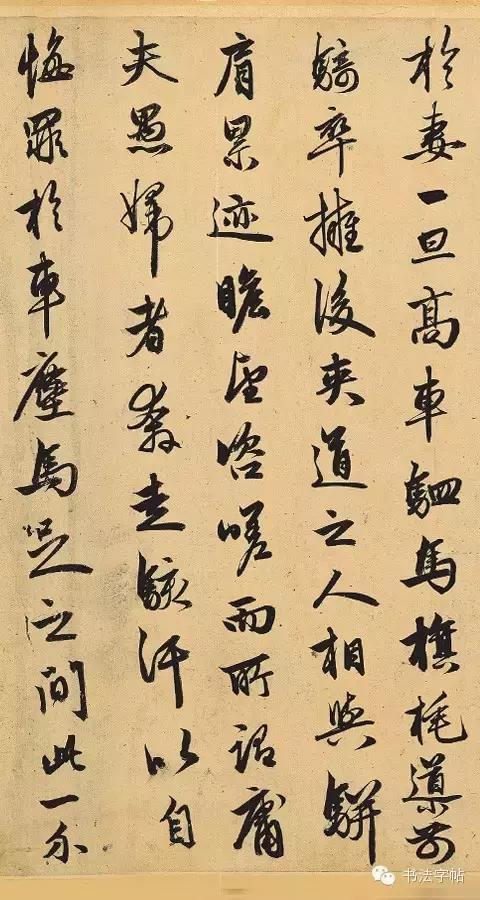 於妻一旦高車駟馬旗旄導前
騎卒擁後夾道之人相與駢
肩累迹瞻望咨嗟而所謂庸
夫愚婦者奔走駭汗以自
悔罪於車塵馬足之間此一介
书法字帖